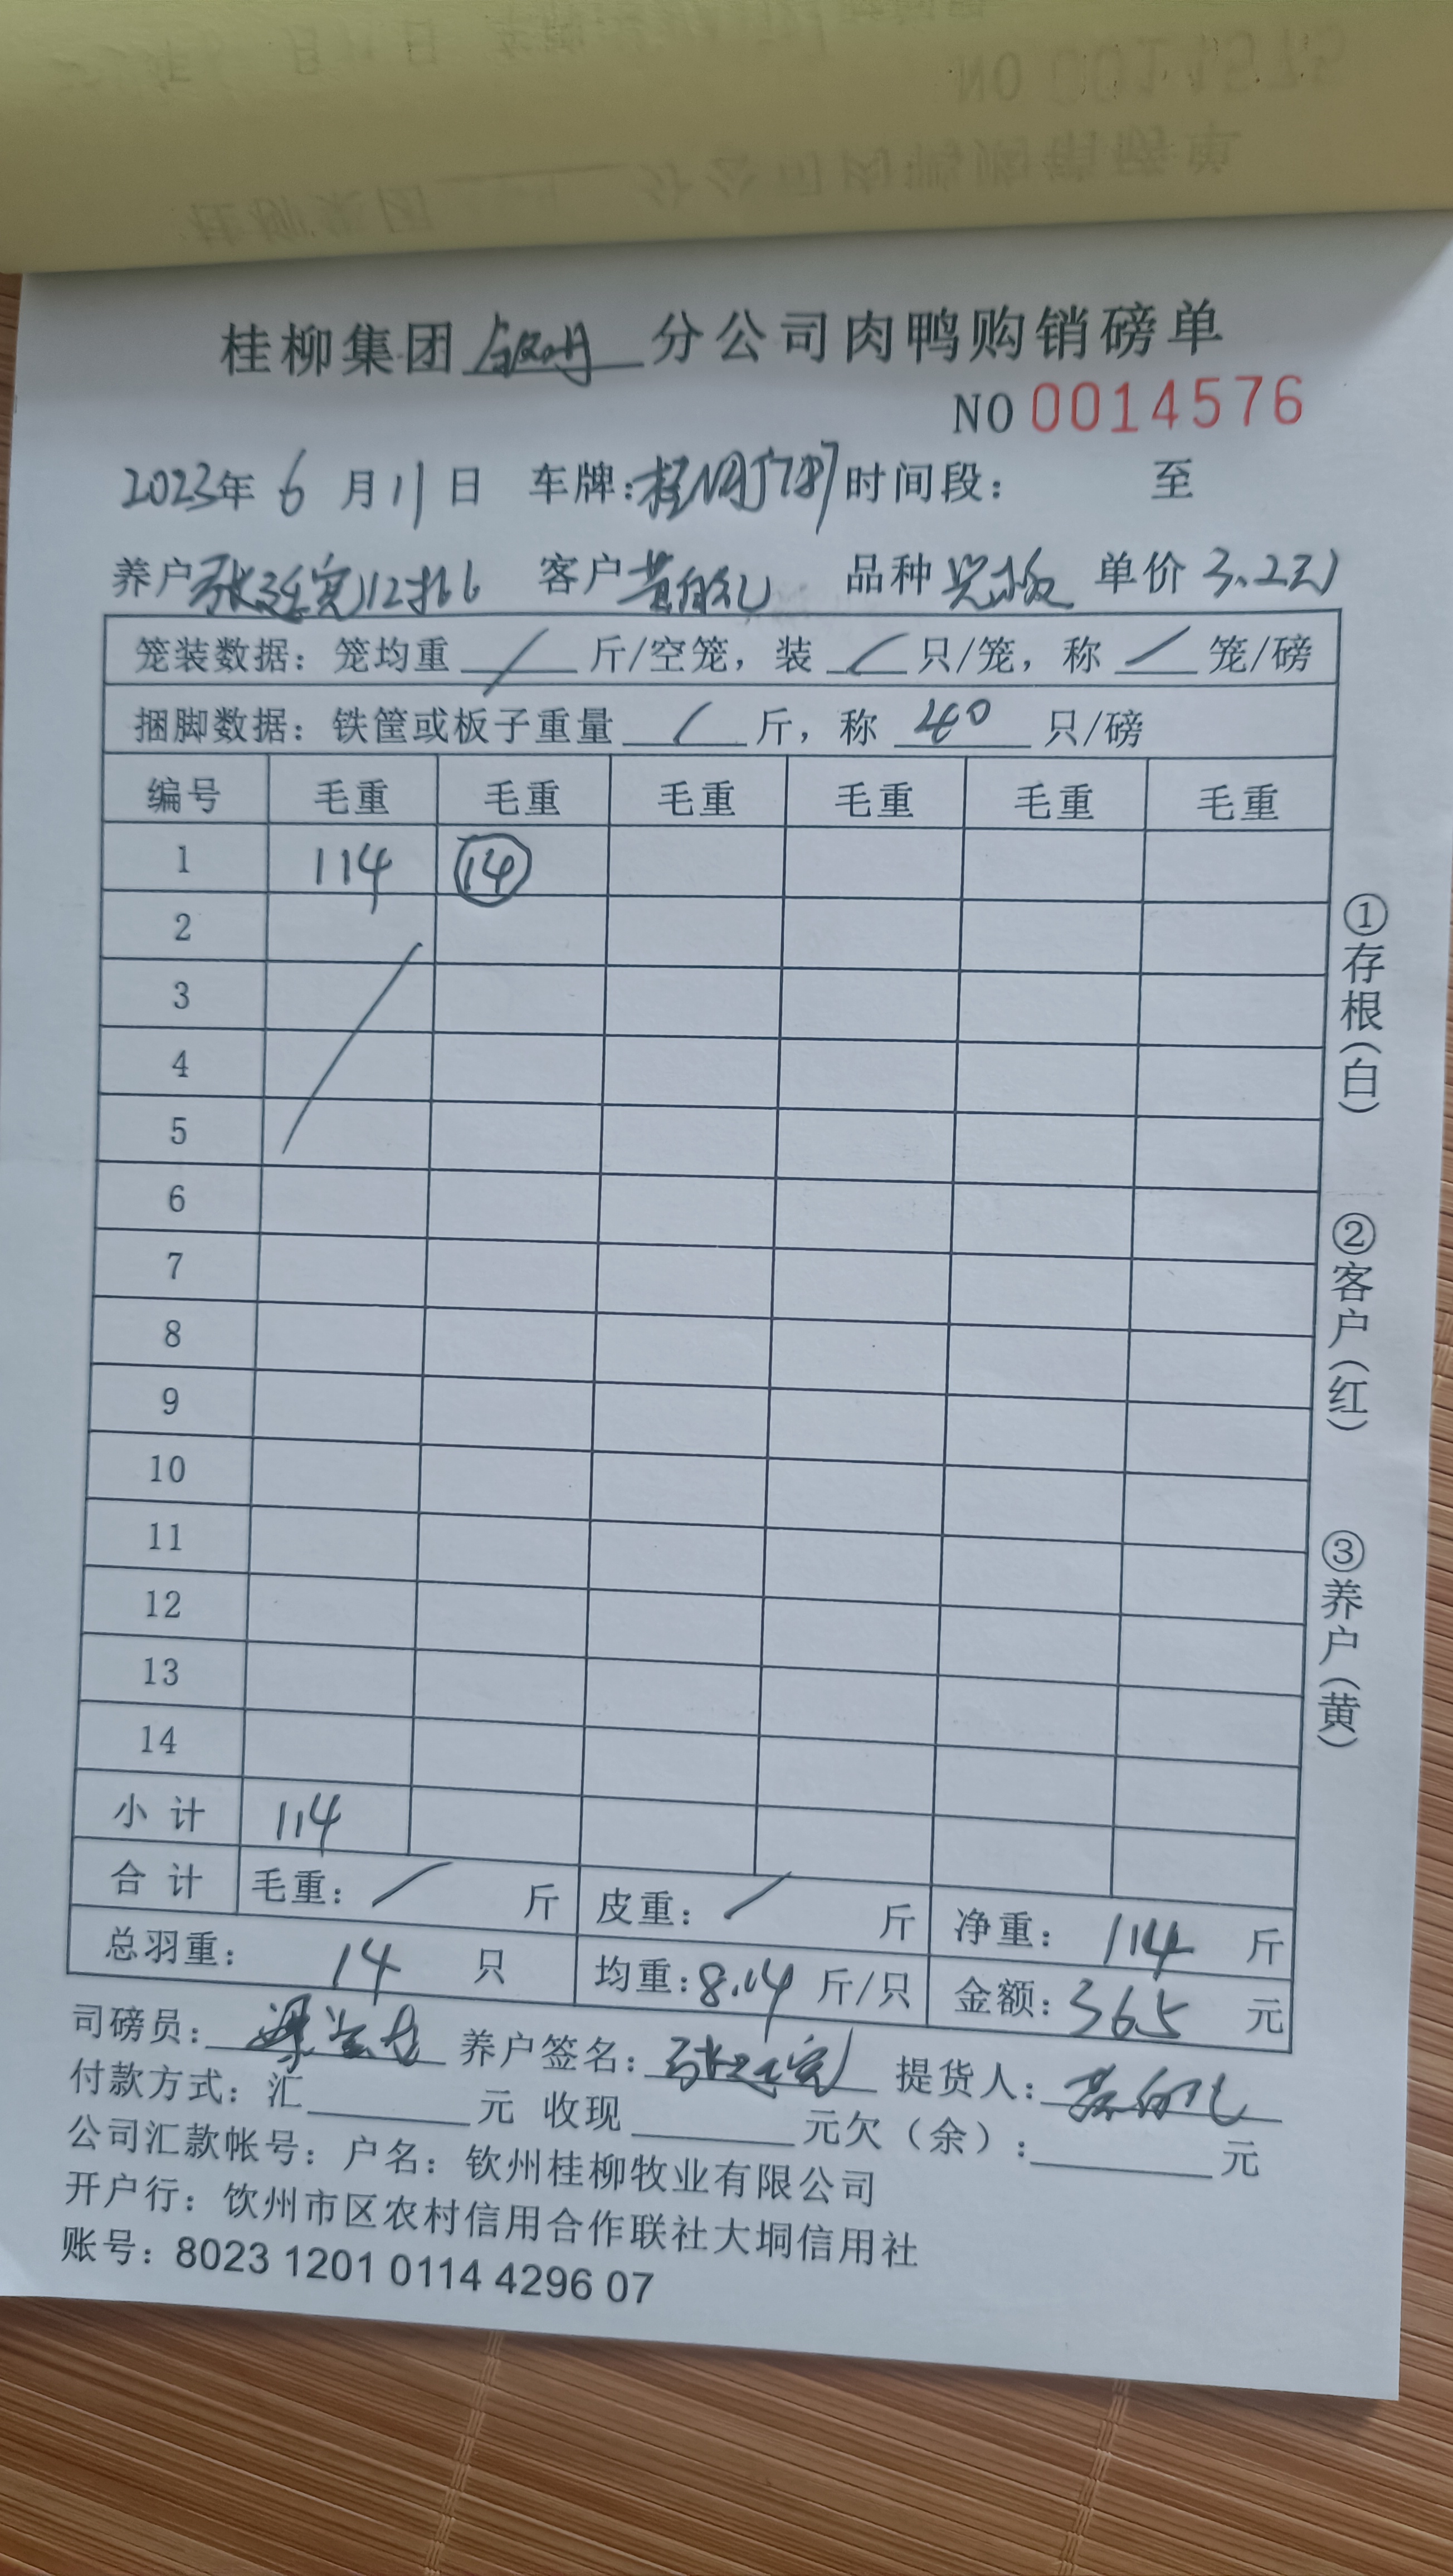 桂柳集团 分公司肉鸭购销磅单
NO 0014576
2023年 6 月 11 日 车牌: 时间段: 至
养户 张廷宾 客户 黄 品种 单价 3.2元
笼装数据: 笼均重 / 斤/空笼, 装 / 只/笼, 称 / 笼/磅
捆脚数据: 铁筐或板子重量 / 斤, 称 40 只/磅
编号 毛重 毛重 毛重 毛重 毛重 毛重
1 114 14
2
3
4
5
6
7
8
9
10
11
12
13
14
小计 114
合计 毛重: / 斤 皮重: / 斤 净重: 114 斤
总羽重: 14 只 均重: 8.14 斤/只 金额: 365 元
司磅员: 梁 养户签名: 张廷宾 提货人: 黄
付款方式: 汇 元 收现 元欠(余): 元
公司汇款帐号: 户名: 钦州桂柳牧业有限公司
开户行: 饮州市区农村信用合作联社大垌信用社
账号: 8023 1201 0114 4296 07
①存根(白)
②客户(红)
③养户(黄)